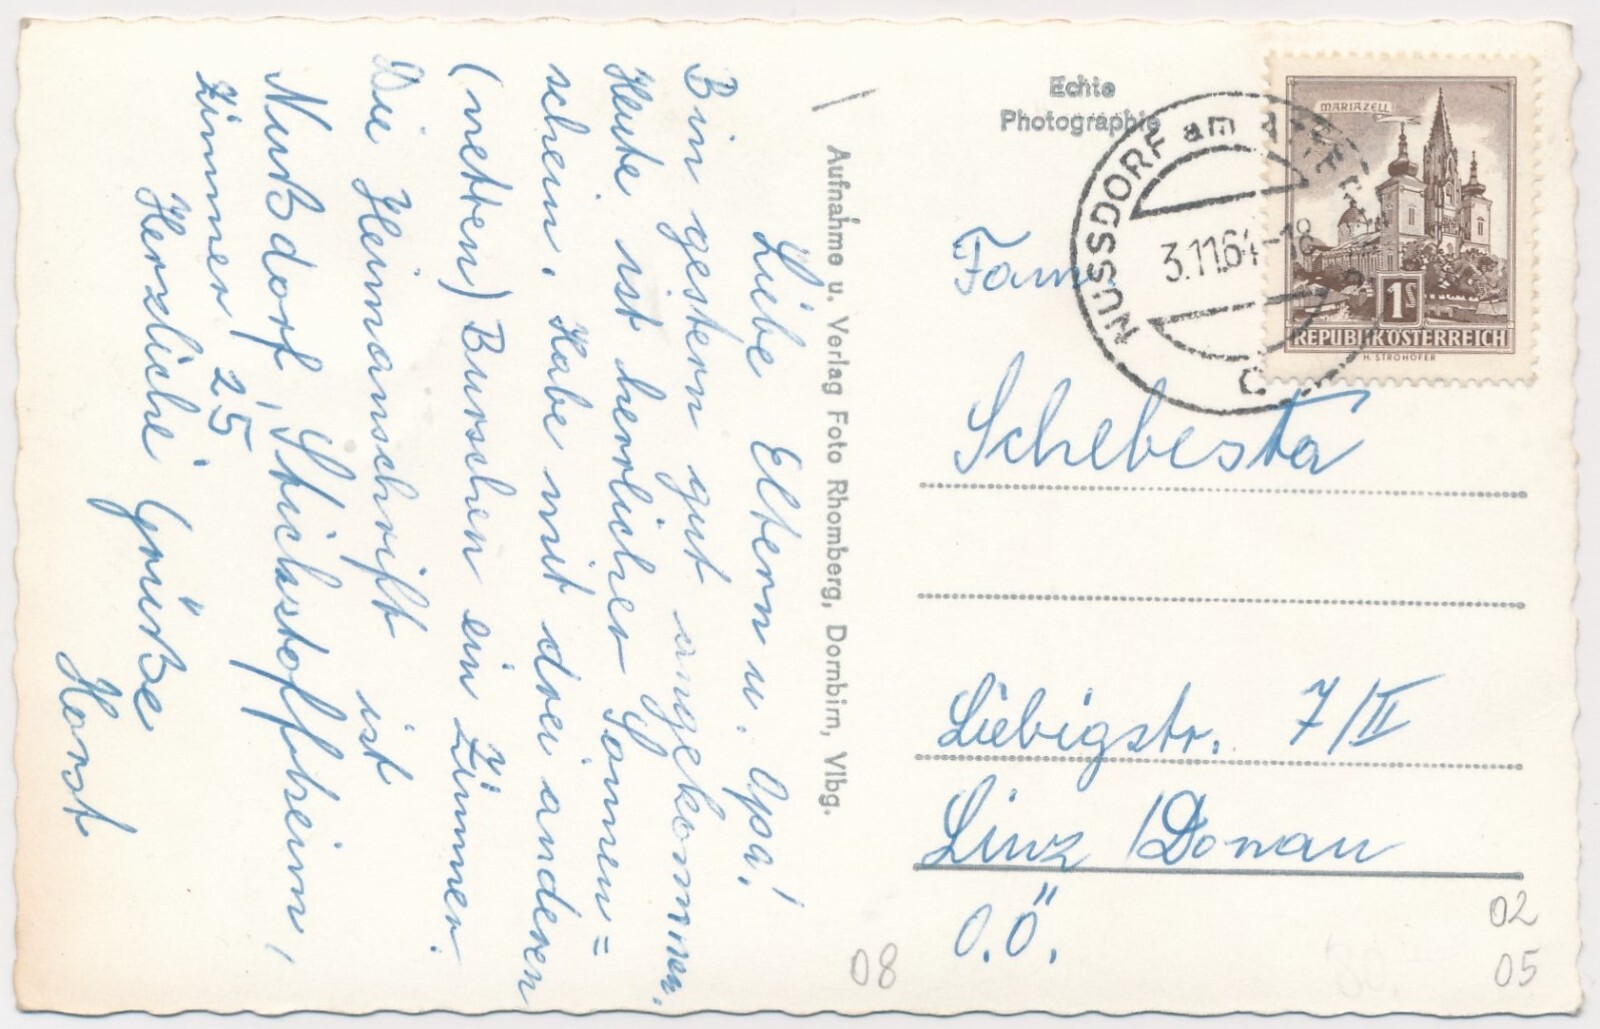 Liebe Eltern u. Opa!
Bin gestern gut angekommen.
Heute ist herrlicher Sonnen=
schein. Habe mit drei anderen
(netten) Burschen ein Zimmer.
Die Heimanschrift ist
Nußdorf, Stickstoffheim,
Zimmer 25
Herzliche Grüße
Horst
Aufnahme u. Verlag Foto Rhomberg, Dornbirn, Vlbg.
Echte
Photographie
NUSSDORF am ATTERSEE
3.11.64-18
MARIAZELL
1S
REPUBLIK ÖSTERREICH
H. STROHOFER
Fam.
Schebesta
Liebigstr. 7/II
Linz /Donau
O.Ö.
08
02
05